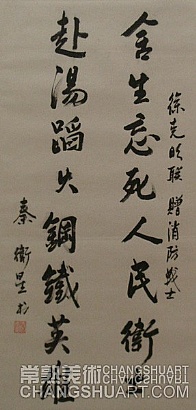 徐克明联 赠消防战士
舍生忘死人民卫
赴汤蹈火鋼鐵英雄
秦
衛星书
常熟美術
CHANGSHUART
CHANGSHUART.COM